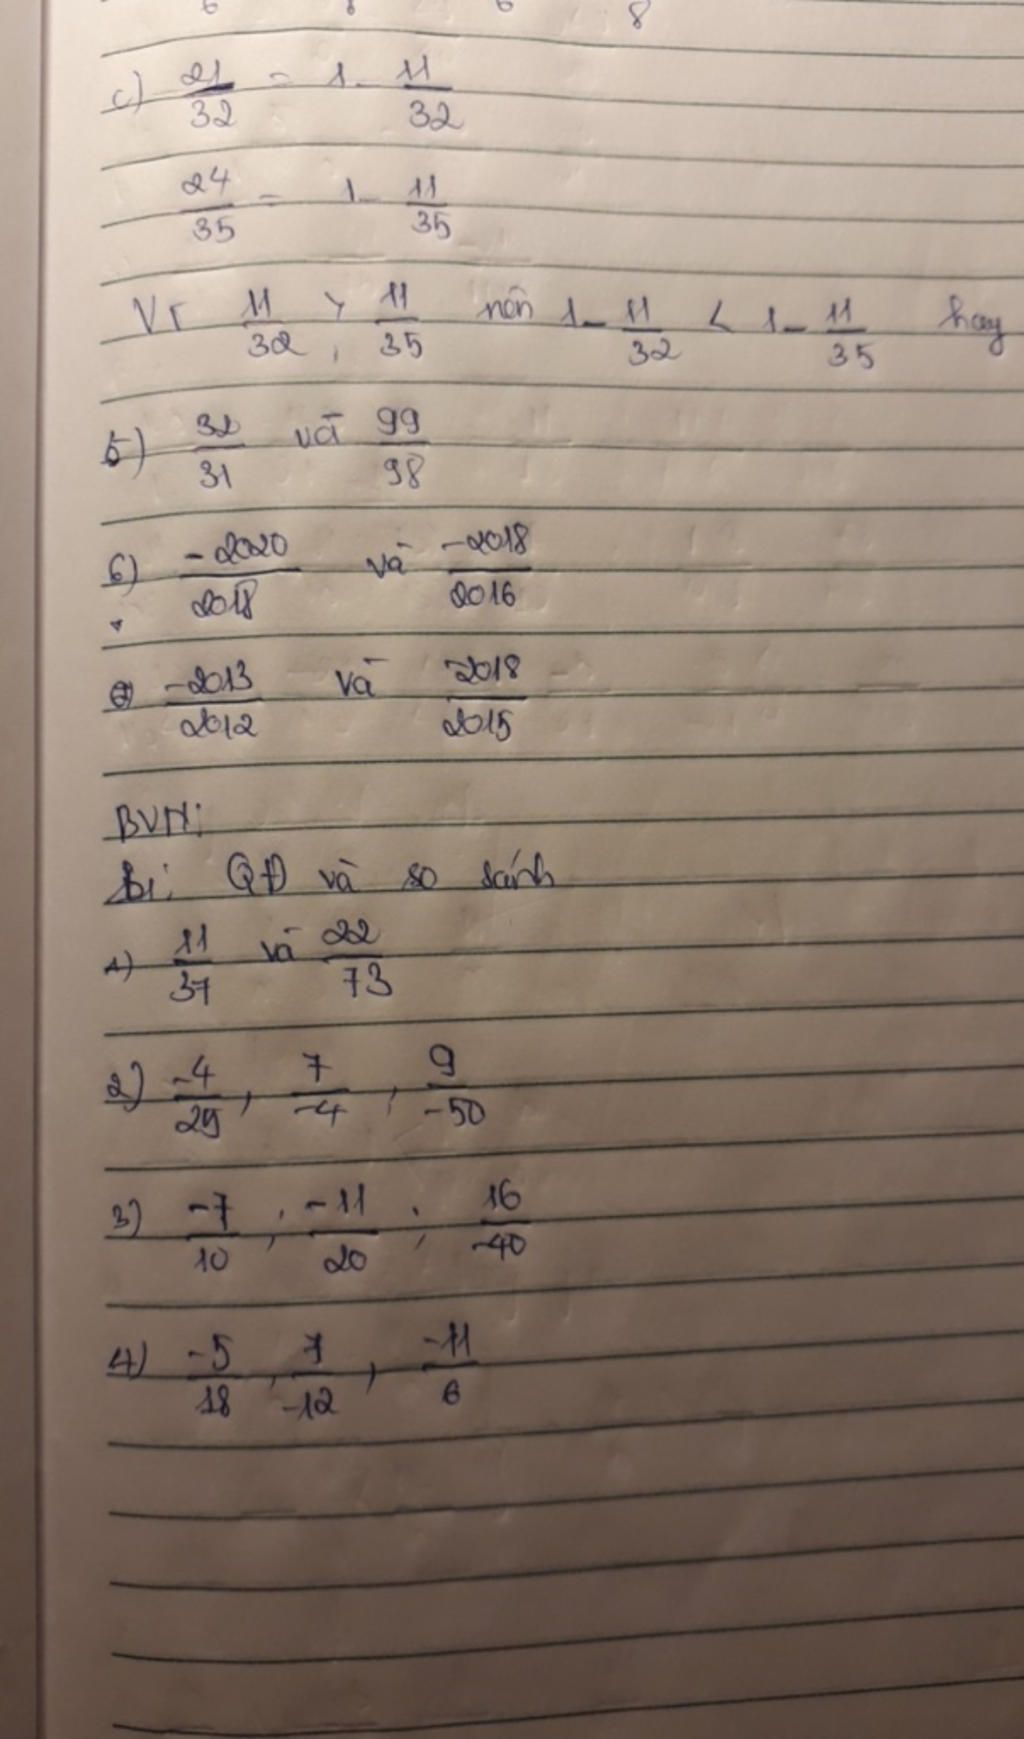 c) 21/32 = 1 - 11/32
24/35 = 1 - 11/35
Vì 11/32 > 11/35 nên 1 - 11/32 < 1 - 11/35 hay
5) 32/31 và 99/98
6) -2020/2018 và -2018/2016
-2013/2012 và -2018/2015
BVN:
B1: QĐ và so sánh
1) 11/37 và 22/73
2) -4/29, 7/-4, 9/-50
3) -7/10; -11/20; 16/-40
4) -5/18, 7/-12, -11/6